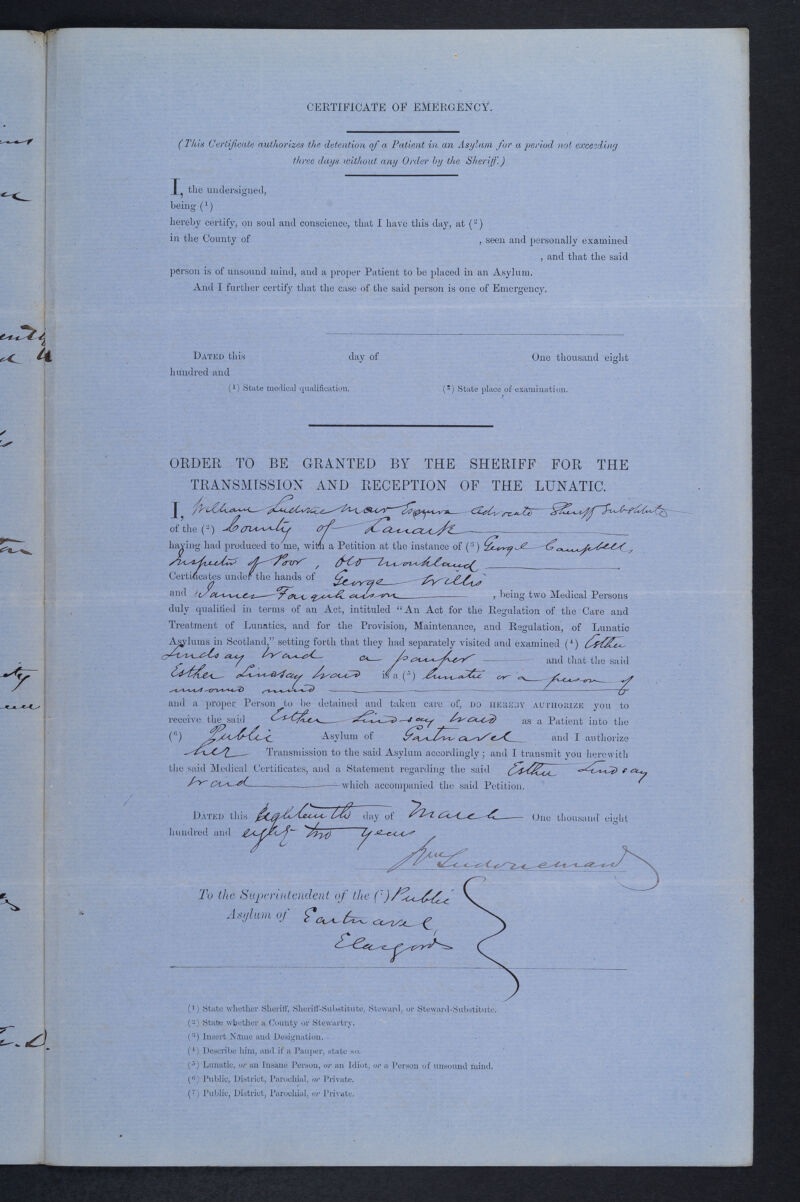 CERTIFICATE OF EMERGENCY.
(This Certificate authorizes the detention of a Patient in an Asylum for a period not exceeding
three days without any Order by the Sheriff.)
I, the undersigned,
being (1)
hereby certify, on soul and conscience, that I have this day, at (2)
in the County of , seen and personally examined
, and that the said
person is of unsound mind, and a proper Patient to be placed in an Asylum.
And I further certify that the case of the said person is one of Emergency.
DATED this day of One thousand eight
hundred and
(1) State medical qualification. (2) State place of examination.
ORDER TO BE GRANTED BY THE SHERIFF FOR THE
TRANSMISSION AND RECEPTION OF THE LUNATIC.
I, William Ludovic Mair Esquire Advocate Sheriff Substitute
of the (2) County of Lanark
having had produced to me, with a Petition at the instance of (3) George Campbell,
Inspector of Poor, Old Monkland
Certificates under the hands of George Willis
and James Farquharson , being two Medical Persons
duly qualified in terms of an Act, intituled "An Act for the Regulation of the Care and
Treatment of Lunatics, and for the Provision, Maintenance, and Regulation, of Lunatic
Asylums in Scotland," setting forth that they had separately visited and examined (4) Esther
Lindsay Ward a pauper and that the said
Esther Lindsay Ward is a (5) lunatic or a person of
unsound mind
and a proper Person to be detained and taken care of, DO HEREBY AUTHORIZE you to
receive the said Esther Lindsay Ward as a Patient into the
(6) Public Asylum of Gartnavel and I authorize
her Transmission to the said Asylum accordingly; and I transmit you herewith
the said Medical Certificates, and a Statement regarding the said Esther Lindsay
Ward which accompanied the said Petition.
DATED this Eighteenth day of March One thousand eight
hundred and eighty two years
Wm Ludovic Mair
To the Superintendent of the (7) Public
Asylum of Gartnavel,
Glasgow
(1) State whether Sheriff, Sheriff-Substitute, Steward, or Steward-Substitute.
(2) State whether a County or Stewartry.
(3) Insert Name and Designation.
(4) Describe him, and if a Pauper, state so.
(5) Lunatic, or an Insane Person, or an Idiot, or a Person of unsound mind.
(6) Public, District, Parochial, or Private.
(7) Public, District, Parochial, or Private.